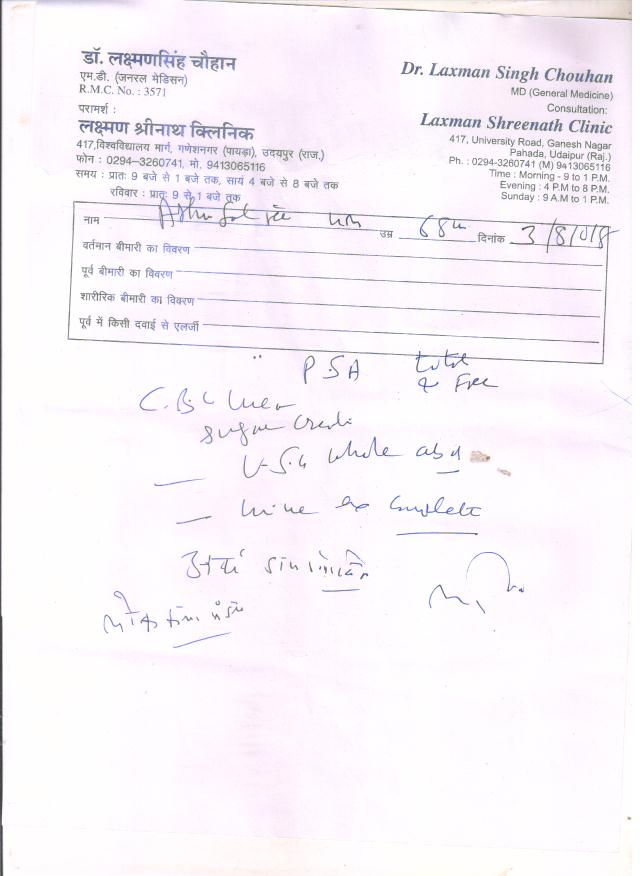 डॉ. लक्ष्मणसिंह चौहान
एम.डी. (जनरल मेडिसन)
R.M.C. No. : 3571
परामर्श :
लक्ष्मण श्रीनाथ क्लिनिक
417,विश्वविद्यालय मार्ग, गणेशनगर (पायड़ा), उदयपुर (राज.)
फोन : 0294-3260741, मो. 9413065116
समय : प्रातः 9 बजे से 1 बजे तक, सायं 4 बजे से 8 बजे तक
रविवार : प्रातः 9 से 1 बजे तक
Dr. Laxman Singh Chouhan
MD (General Medicine)
Consultation:
Laxman Shreenath Clinic
417, University Road, Ganesh Nagar
Pahada, Udaipur (Raj.)
Ph. : 0294-3260741 (M) 9413065116
Time : Morning - 9 to 1 P.M.
Evening : 4 P.M to 8 P.M.
Sunday : 9 A.M to 1 P.M.
नाम उम्र 68 दिनांक 3/8/018
वर्तमान बीमारी का विवरण
पूर्व बीमारी का विवरण
शारीरिक बीमारी का विवरण
पूर्व में किसी दवाई से एलर्जी
P.S.A total
& Free
C.B.C Urea
Sugar
U.S.G whole abd
Urine ex complete